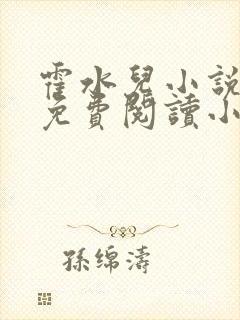 霍水兒小說
免費閱讀小
孫綿濤